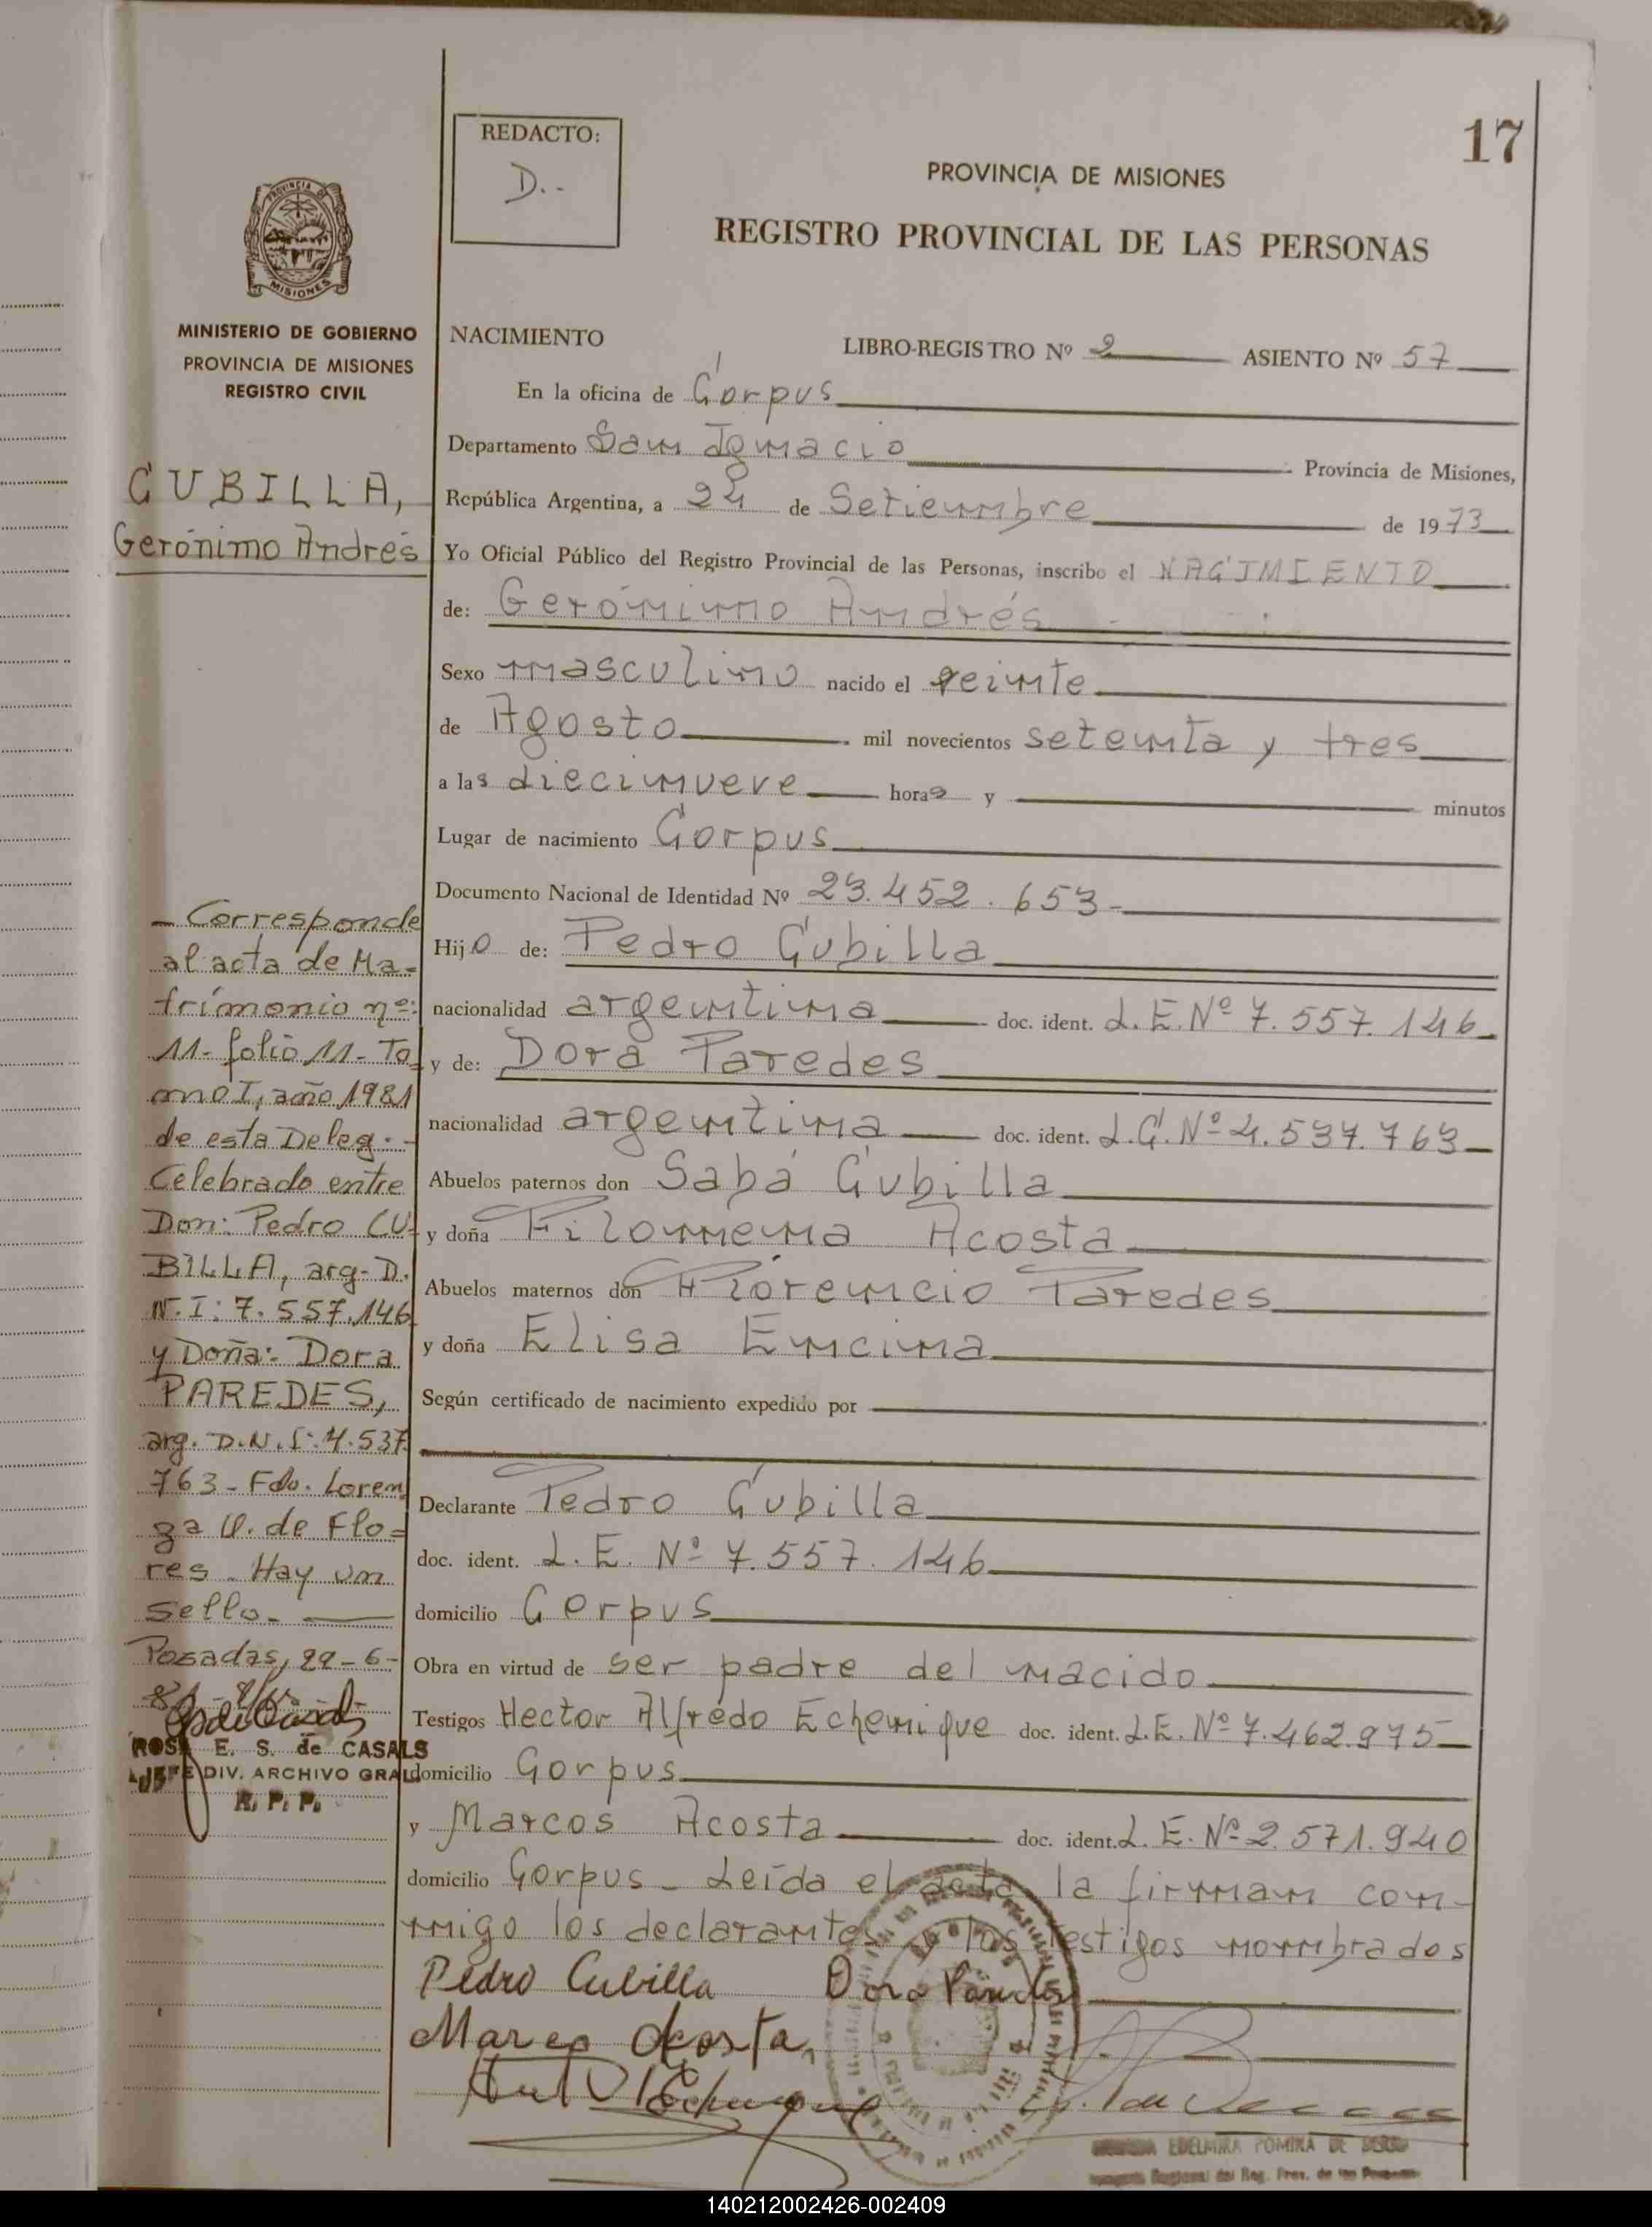 17
REDACTO:
D.-
PROVINCIA DE MISIONES
REGISTRO PROVINCIAL DE LAS PERSONAS
PROVINCIA DE
MISIONES
MINISTERIO DE GOBIERNO
PROVINCIA DE MISIONES
REGISTRO CIVIL
CUBILLA,
Gerónimo Andrés
- Corresponde
al acta de Ma=
trimonio nº:
11- folio 11- To
omo I, año 1981
de esta Deleg.-
Celebrado entre
Don: Pedro CU=
BILLA, arg- D.
N.I: 7.557.146
y Doña: Dora
PAREDES,
arg. D.N.I: 4.537.
763- Fdo. Loren
za V. de Flo=
res. Hay un
sello.-
Posadas, 22-6-
ROSA E. S. de CASALS
JEFE DIV. ARCHIVO GRAL
R. P. P.
NACIMIENTO LIBRO-REGISTRO Nº 2 ASIENTO Nº 57
En la oficina de Corpus
Departamento San Ignacio Provincia de Misiones,
República Argentina, a 24 de Setiembre de 1973
Yo Oficial Público del Registro Provincial de las Personas, inscribo el NACIMIENTO
de: Gerónimo Andrés
Sexo masculino nacido el veinte
de Agosto mil novecientos setenta y tres
a las diecinueve horas y minutos
Lugar de nacimiento Corpus
Documento Nacional de Identidad Nº 23.452.653-
Hijo de: Pedro Cubilla
nacionalidad argentina doc. ident. L.E. Nº 7.557.146
y de: Dora Paredes
nacionalidad argentina doc. ident. L.C. Nº 4.537.763
Abuelos paternos don Sabá Cubilla
y doña Filomena Acosta
Abuelos maternos don Florencio Paredes
y doña Elisa Encina
Según certificado de nacimiento expedido por
Declarante Pedro Cubilla
doc. ident. L.E. Nº 7.557.146
domicilio Corpus
Obra en virtud de ser padre del nacido
Testigos Hector Alfredo Echenique doc. ident. L.E. Nº 7.462.975
domicilio Corpus
y Marcos Acosta doc. ident. L.E. Nº 2.571.940
domicilio Corpus - Leída el acta la firman con-
migo los declarantes y los testigos nombrados
Pedro Cubilla Dora Paredes
Marco Acosta
EDELMIRA ROMINA DE
Regional del Reg. Prov. de las Personas
140212002426-002409